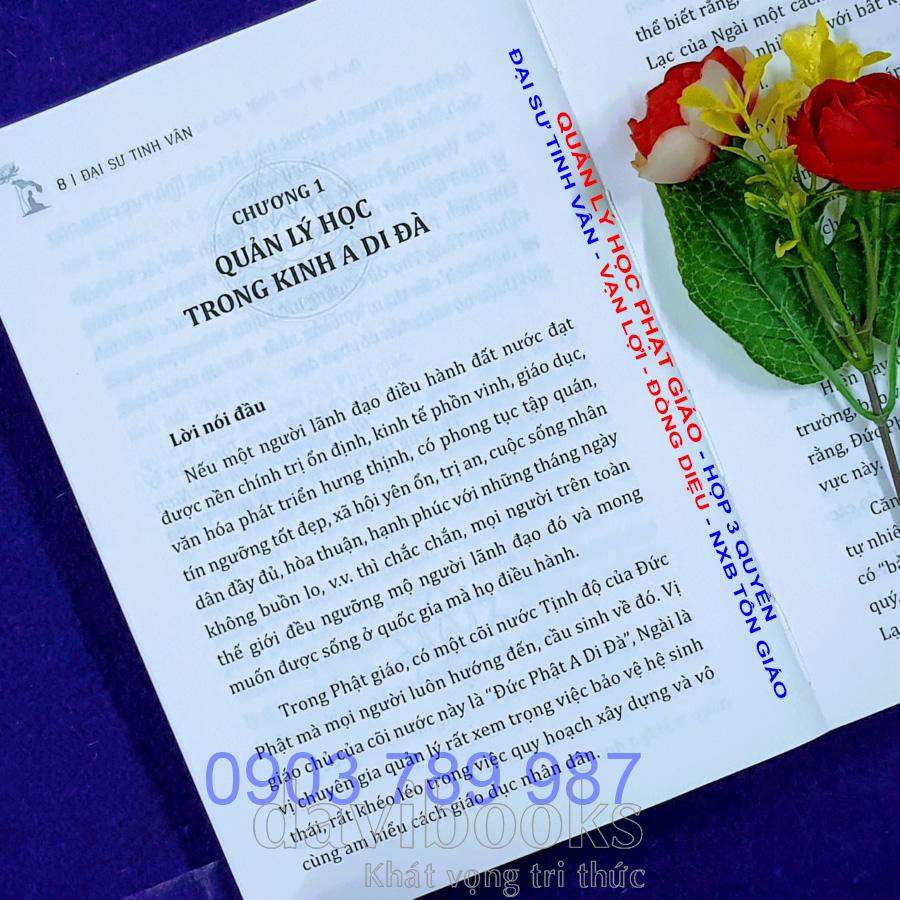 8 | ĐẠI SƯ TINH VÂN
CHƯƠNG 1
QUẢN LÝ HỌC
TRONG KINH A DI ĐÀ
Lời nói đầu
Nếu một người lãnh đạo điều hành đất nước đạt
được nền chính trị ổn định, kinh tế phồn vinh, giáo dục,
văn hóa phát triển hưng thịnh, có phong tục tập quán,
tín ngưỡng tốt đẹp, xã hội yên ổn, trị an, cuộc sống nhân
dân đầy đủ, hòa thuận, hạnh phúc với những tháng ngày
không buồn lo, v.v. thì chắc chắn, mọi người trên toàn
thế giới đều ngưỡng mộ người lãnh đạo đó và mong
muốn được sống ở quốc gia mà họ điều hành.
Trong Phật giáo, có một cõi nước Tịnh độ của Đức
Phật mà mọi người luôn hướng đến, cầu sinh về đó. Vị
giáo chủ của cõi nước này là “Đức Phật A Di Đà”, Ngài là
vị chuyên gia quản lý rất xem trọng việc bảo vệ hệ sinh
thái, rất khéo léo trong việc quy hoạch xây dựng và vô
cùng am hiểu cách giáo dục nhân dân.
QUẢN LÝ HỌC PHẬT GIÁO - HỘP 3 QUYỂN
ĐẠI SƯ TINH VÂN - VẠN LỢI - ĐỒNG DIỆU - NXB TÔN GIÁO
thể biết rằng,
Lạc của Ngài một các
với bất k
Hiện nay
trường, b
rằng, Đức Ph
vực này.
Căn
tự nhiê
có “bả
quý,
Lạ
0903 789 987
davibooks
Khát vọng tri thức